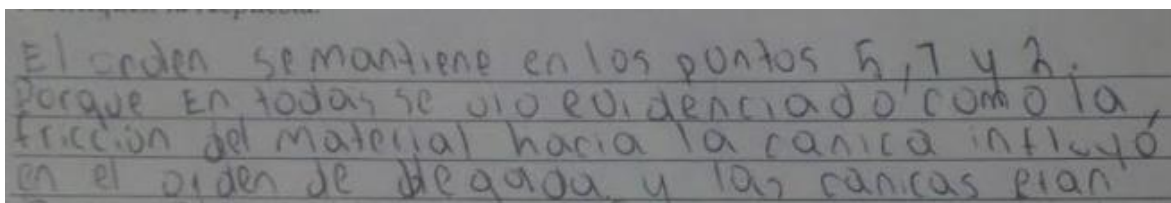 El orden se mantiene en los puntos 5, 7 y
Porque En todas se vio evidenciado como la
fricción del material hacia la canica influyó
en el orden de llegada y las canicas eran